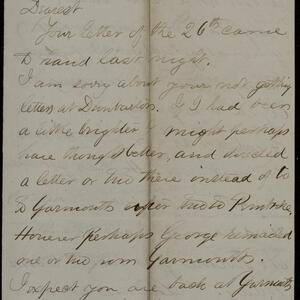 Dearest
Your letter of the 26th came
to hand last night.
I am sorry about your not getting
letters at Dunbarton. If I had been
a little brighter I might perhaps
have thought better, and directed
a letter or two there instead of to
to Yarmouth after two to Pembroke.
However perhaps George remailed
one or two from Yarmouth.
I expect you are back at Yarmouth